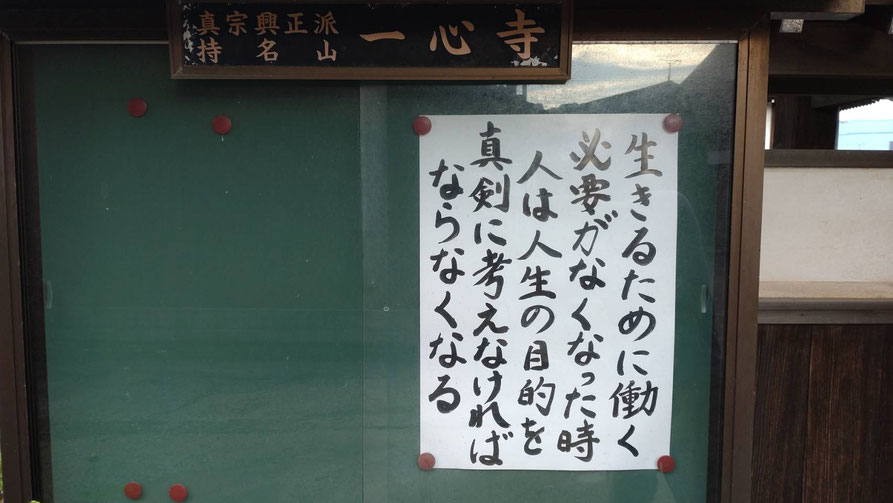 真宗興正派
持名山
一心寺
生きるために働く
必要がなくなった時
人は人生の目的を
真剣に考えなければ
ならなくなる